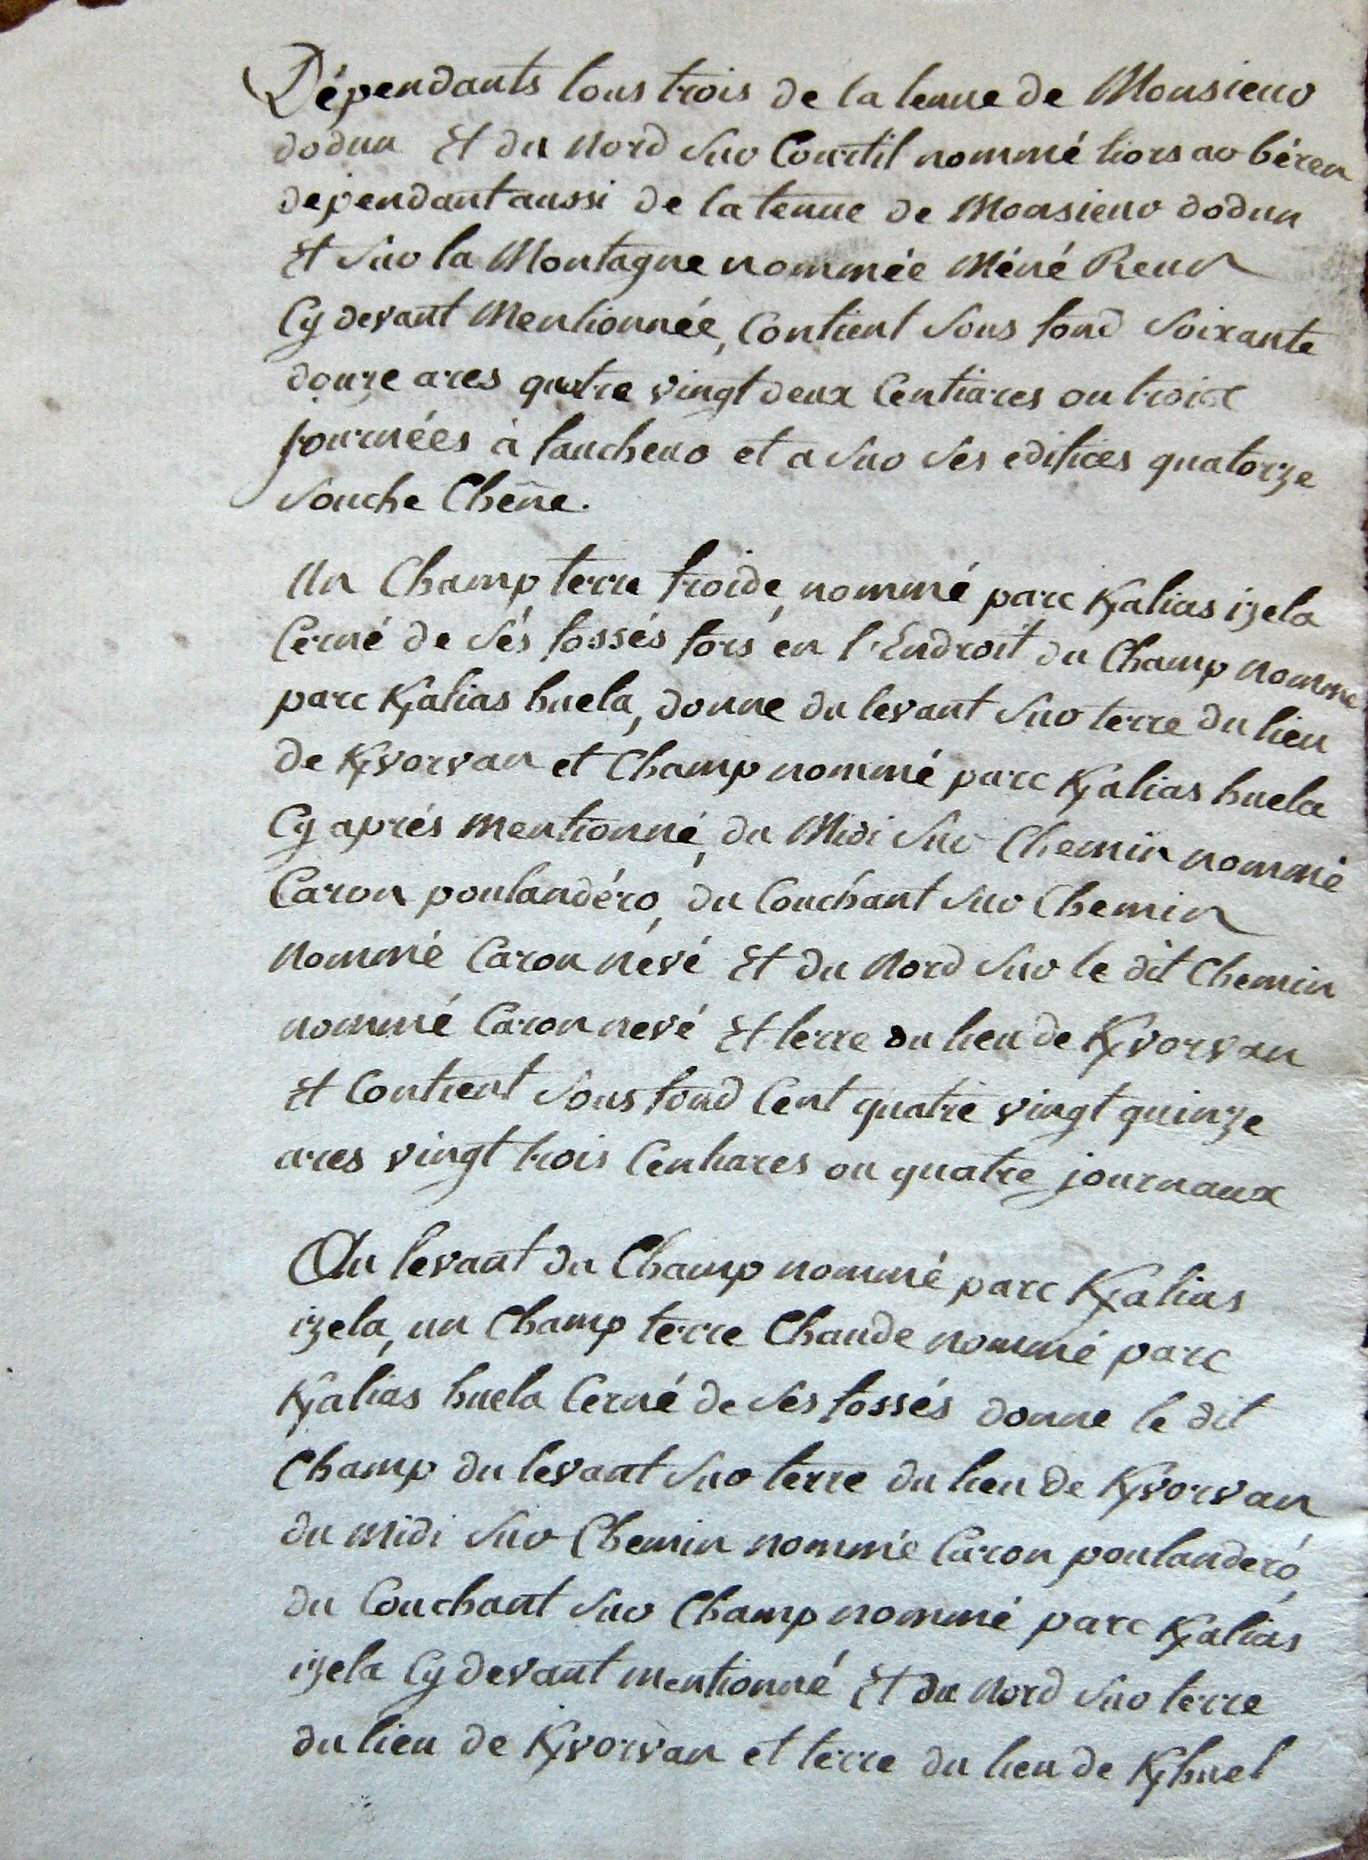 Dépendants tous trois de la tenue de Monsieur
dodun Et du Nord sur Courtil nommé liors ar béren
dependant aussi de la tenue de Monsieur dodun
Et sur la Montagne nommée Méné Reun
Cy devant Mentionnée, Contient sous fond soixante
douze ares quatre vingt deux Centiares ou trois
journées à faucheur et a sur ses edifices quatorze
souche Chêne.
Un Champ terre froide, nommé parc Kalias izela
Cerné de sés fossés fors en l'Endroit du Champ nommé
parc Kalias huela, donne du levant sur terre du lieu
de Kvorvan et Champ nommé parc Kalias huela
Cy aprés mentionné, du Midi sur Chemin nommé
Caron poulandéro, du Couchant sur Chemin
Nommé Caron névé Et du Nord sur le dit Chemin
nommé Caron nevé Et terre du lieu de Kvorvan
Et Contient sous fond Cent quatre vingt quinze
ares vingt trois Centiares ou quatre journaux
Au levant du Champ nommé parc Kalias
izela, un Champ terre Chaude nommé parc
Kalias huela Cerné de ses fossés donne le dit
Champ du levant sur terre du lieu de Kvorvan
du midi sur Chemin nommé Caron poulanderó,
du Couchant sur Champ nommé parc Kalias
izela Cy devant mentionné Et du Nord sur terre
du lieu de Kvorvan et terre du lieu de Khuel